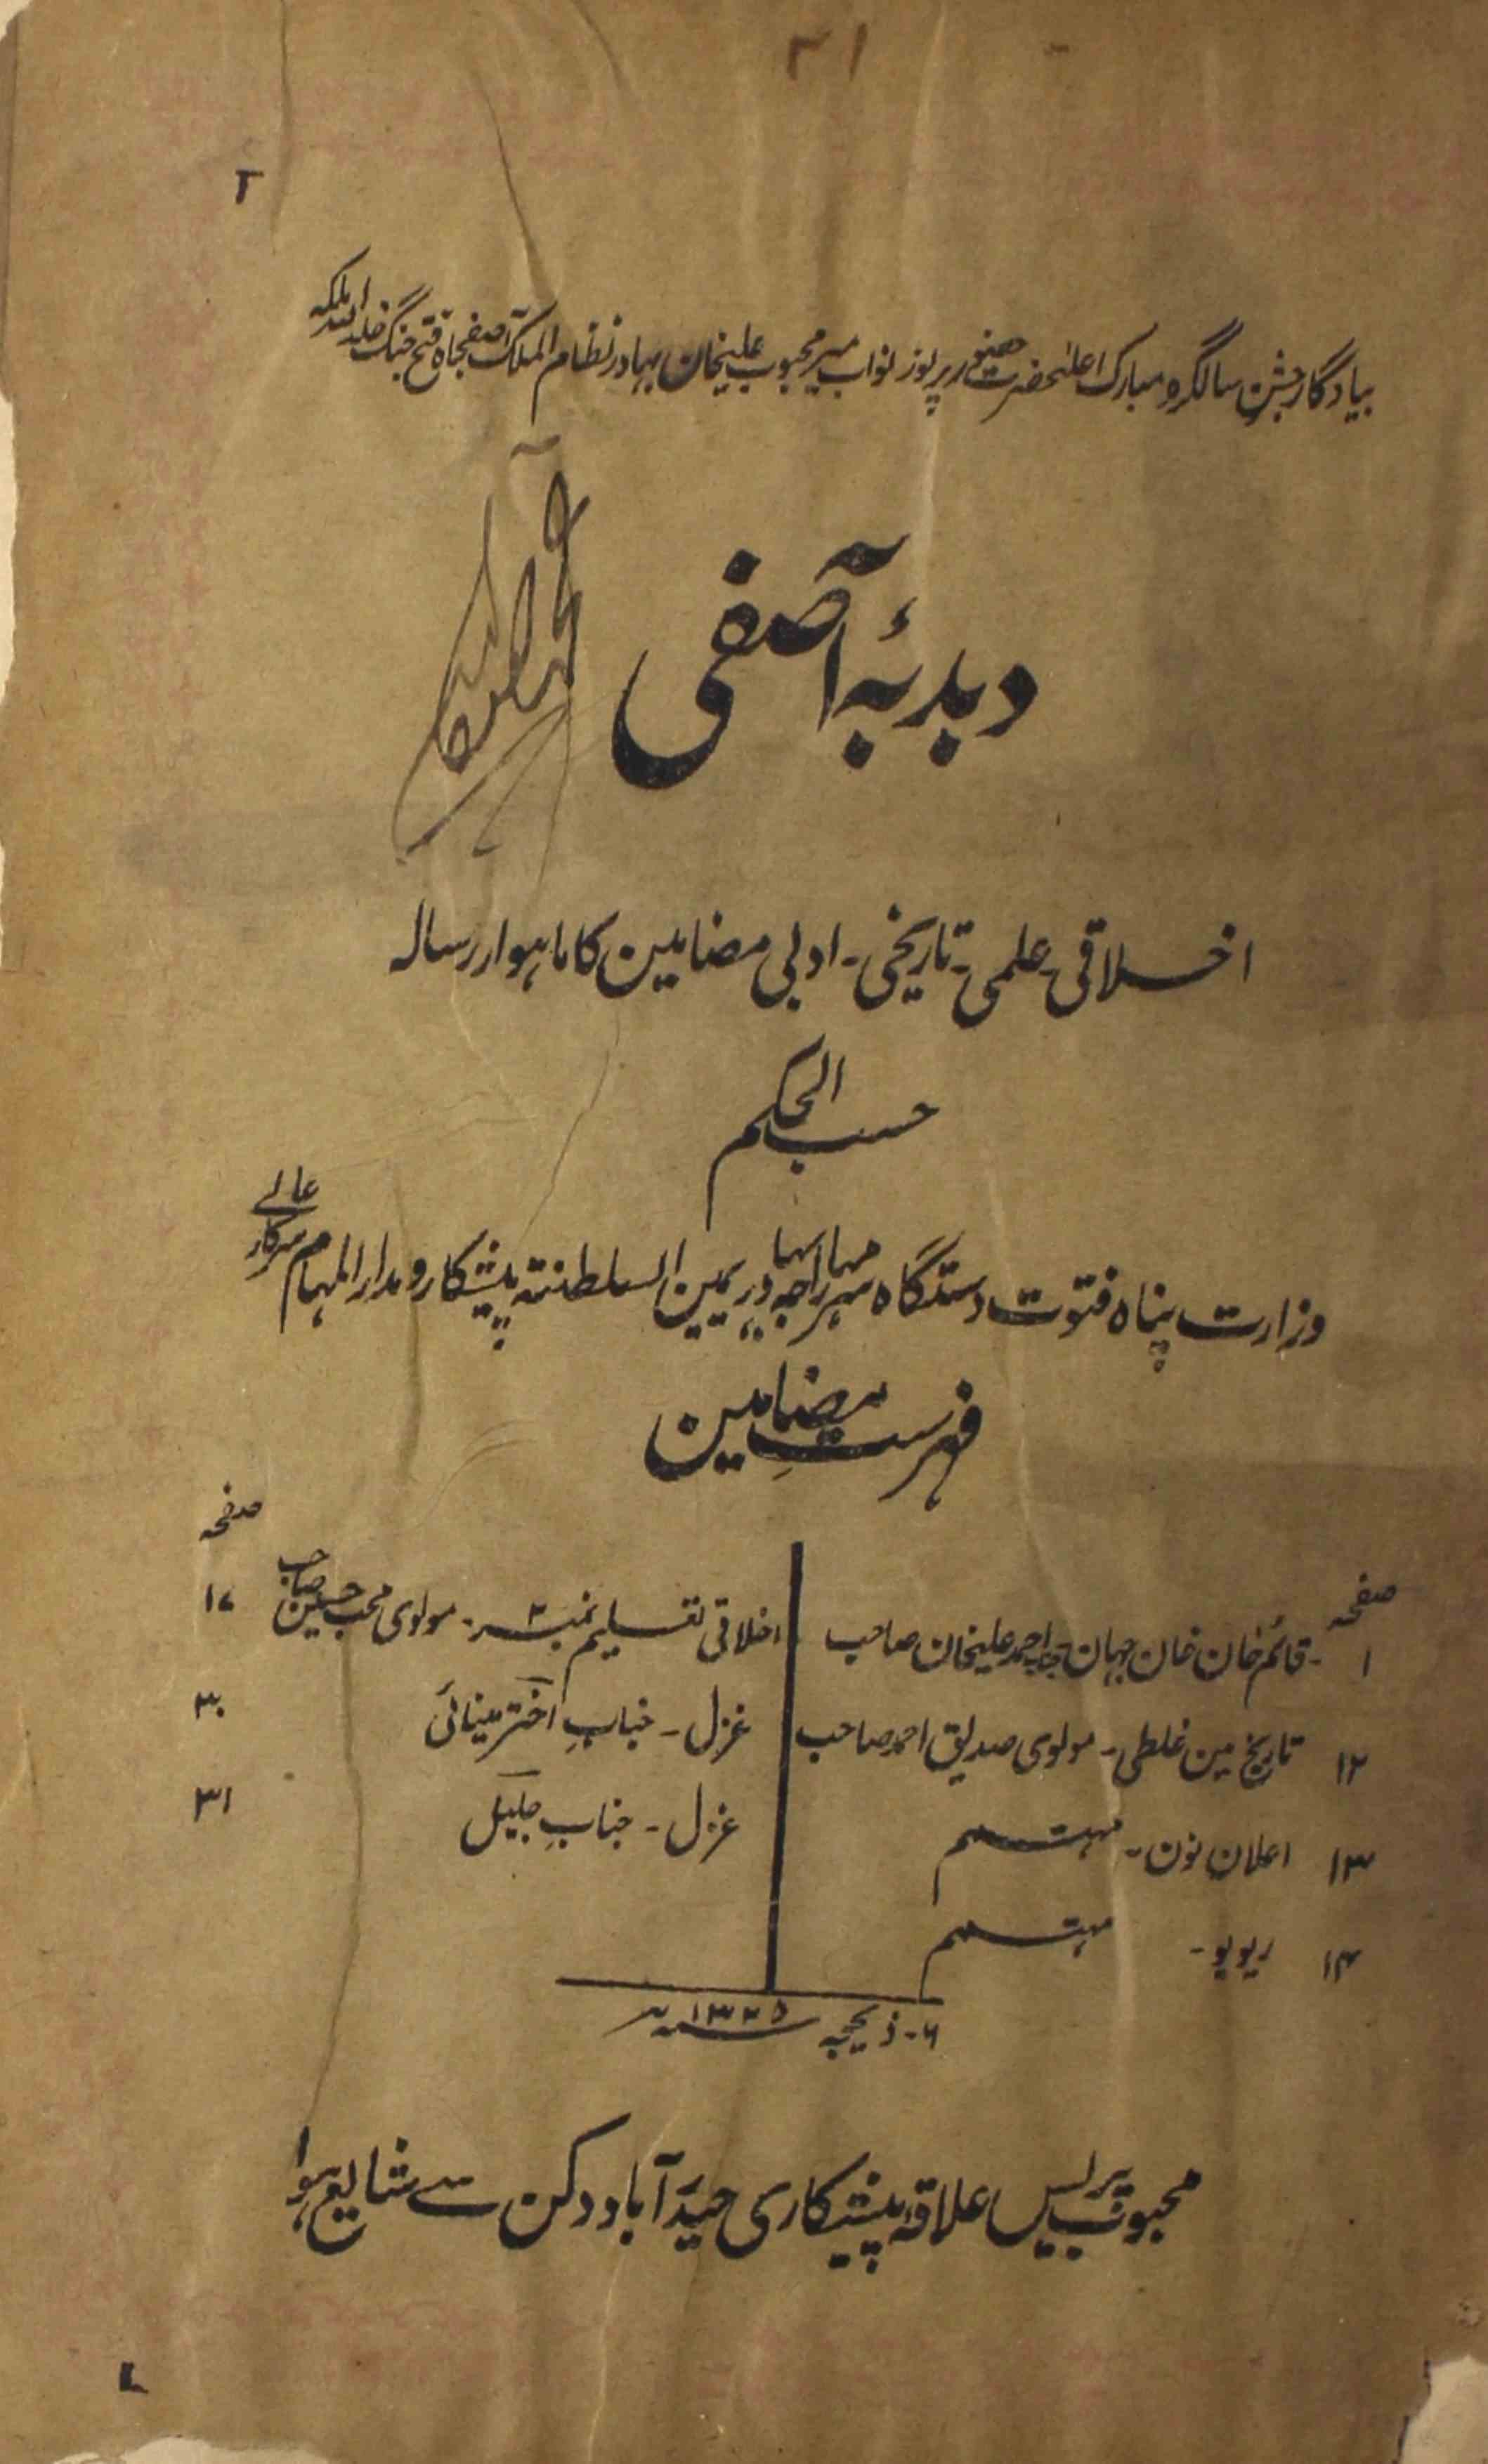 ۳۱
بیادگار جشن سالگرہ مبارک اعلیٰحضرت حضور پرنور نواب میر محبوب علیخان بہادر نظام الملک آصفجاہ فتح جنگ خلد اللہ ملکہ
دبدبۂ آصفی
اخلاقی علمی۔ تاریخی۔ ادبی مضامین کا ماہوار رسالہ
حسب الحکم
وزارت پناہ فتوت دستگاہ مہاراجہ بہادر یمین السلطنتہ پیشکار و مدار المہام سرکار عالے
فہرست مضامین
صفحہ
۱ قائم خان خان جہان جناب احمد علیخان صاحب
۱۲ تاریخ مین غلطی۔ مولوی صدیق احمد صاحب
۱۳ اعلان نون۔ مہتمم
۱۴ ریویو۔ مہتمم
صفحہ
اخلاقی تعلیم نمبر ۲۔ مولوی محب حسین صاحب ۱۷
غزل۔ جناب اختر مینائی ۳۰
غزل۔ جناب جلیل ۳۱
۶۔ ذیحجہ ۱۳۲۵ھ
محبوب پریس علاقہ پیشکاری حیدرآباد دکن سے شایع ہوا